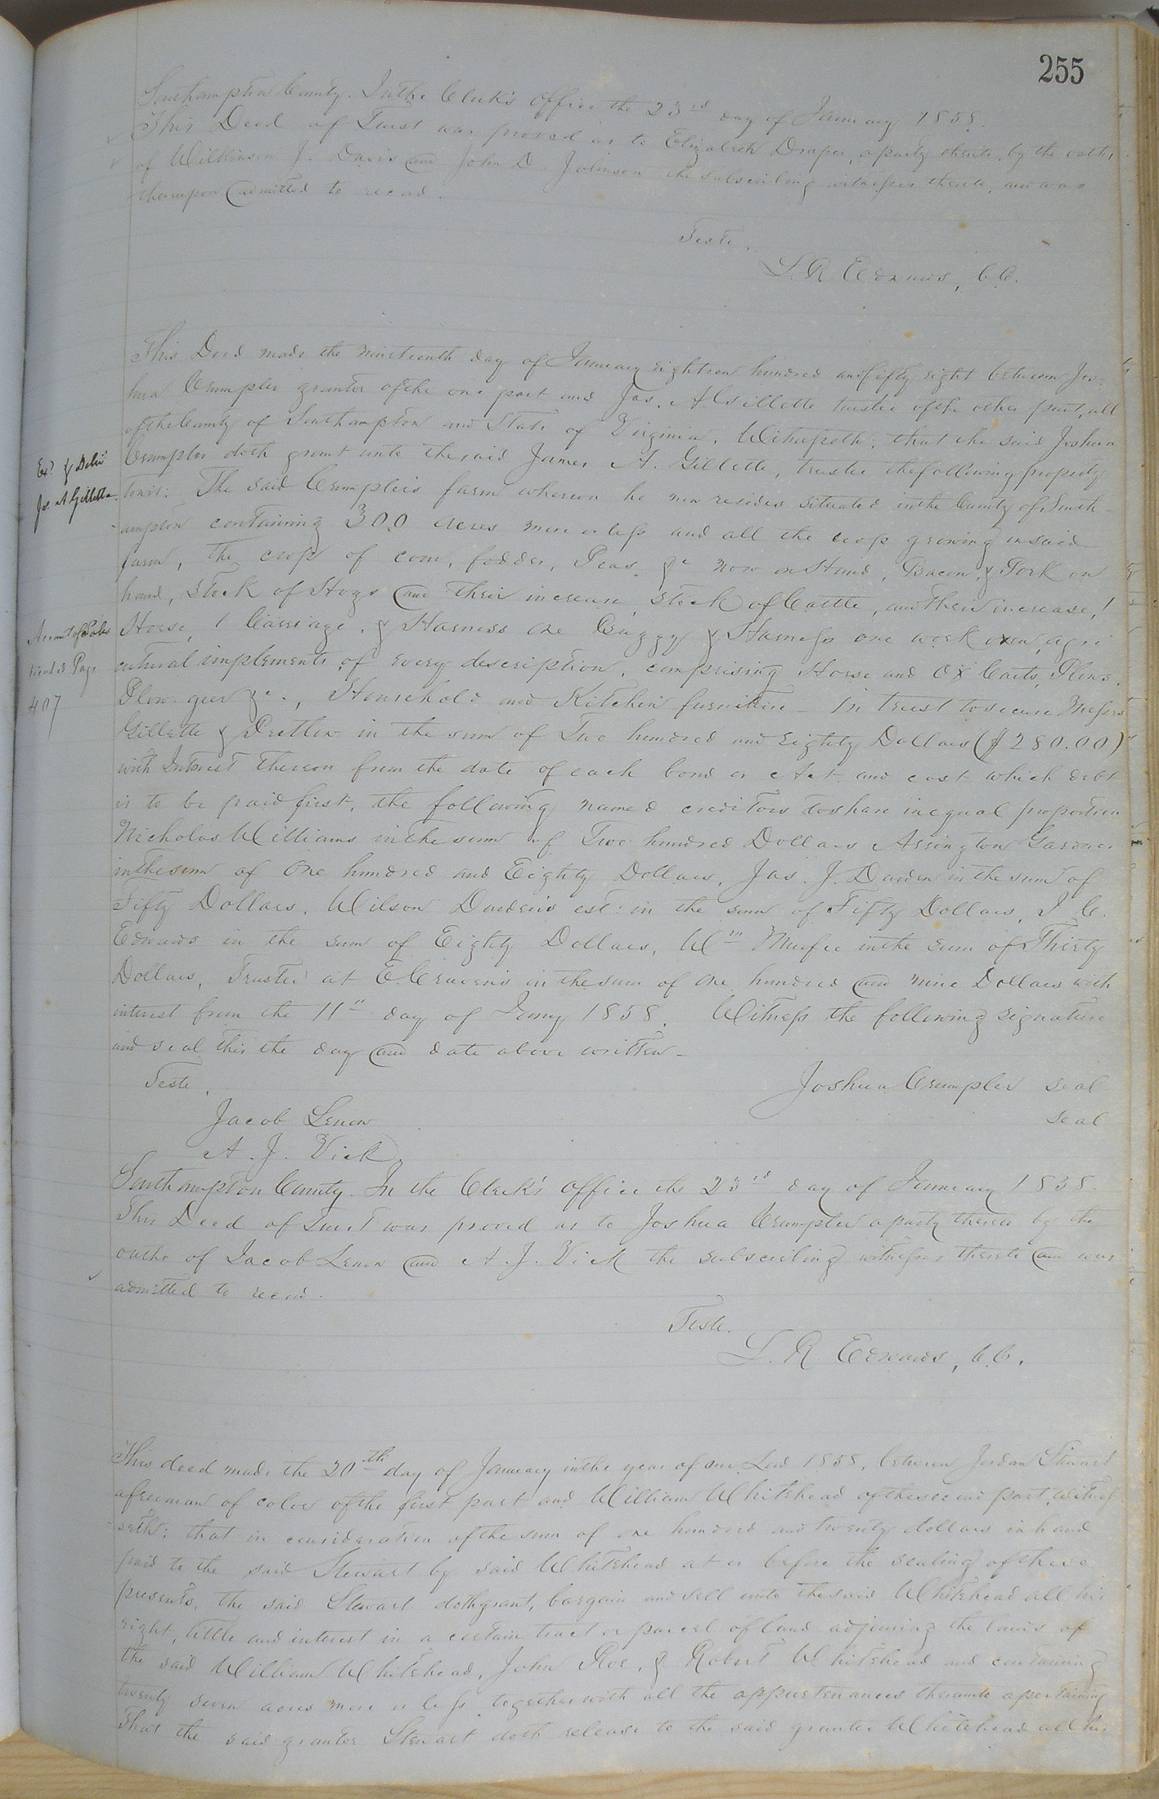 255
Southampton County. In the Clerk's Office the 23rd day of January 1858.
This Deed of Trust was proved as to Elizabeth Draper, a party thereto, by the oaths
of Wilkinson J. Davis and John D. Johnson the subscribing witnesses thereto, and was
thereupon admitted to record.
Teste,
L. R. Edwards, C.C.
This Deed made the nineteenth day of January eighteen hundred and fifty eight between Jos-
hua Crumpler grantor of the one part and Jas. A Gillette trustee of the other part, all
of the County of Southampton and State of Virginia. Witnesseth: that the said Joshua
Crumpler doth grant unto the said James A. Gillette, trustee the following property
Exd & Deld
Jas A Gillette
towit: The said Crumpler's farm whereon he now resides situated in the County of South-
ampton containing 300 acres more or less and all the crop growing in said
farm, the crop of corn, fodder, Peas, &c now on Hand, Bacon & Pork on
hand, Stock of Hogs and their increase, Stock of Cattle, and their increase, 1
Horse, 1 Carriage, & Harness one Buggy & Harness one work oxen, agri
cultural implements of every description, comprising Horse and Ox Carts, Plows,
Page
407
Plow geer &c., Household and Kitchin furniture - In trust to secure Messrs
Gillette & Pretlow in the sum of Two hundred and Eighty Dollars ($280.00)
with Interest thereon from the date of each bond or Act and cost which debt
is to be paid first, the following named creditors to share in equal proportion
Nicholas Williams in the sum of Two hundred Dollars Arrington Gardner
in the sum of One hundred and Eighty Dollars, Jas. J. Darden in the sum of
Fifty Dollars, Wilson Darden's est: in the sum of Fifty Dollars, J. C.
Edwards in the sum of Eighty Dollars, Wm Murfee in the sum of Thirty
Dollars, Trustee at E. Craven's in the sum of One hundred and nine Dollars with
interest from the 11th day of Jany 1858. Witness the following signature
and seal this the day and date above written -
Teste, Joshua Crumpler seal
Jacob Lenow seal
A. J. Vick
Southampton County. In the Clerk's Office the 23rd day of January 1858.
This Deed of Trust was proved as to Joshua Crumpler a party thereto by the
oaths of Jacob Lenow and A. J. Vick the subscribing witnesses thereto and was
admitted to record.
Teste.
L. R Edwards, C.C.
This deed made the 20th day of January in the year of our Lord 1858, between Jordan Stewart
a freeman of color of the first part and William Whitehead of the second part, witnes-
seth: that in consideration of the sum of one hundred and twenty dollars in hand
paid to the said Stewart by said Whitehead at or before the sealing of these
presents, the said Stewart doth grant, bargain and sell unto the said Whitehead all his
right, tittle and interest in a certain tract or parcel of land adjoining the lands of
the said William Whitehead, John Roe, & Robert Whitehead and containing
twenty seven acres more or less, together with all the appurtenances thereunto apertaining
That the said grantor Stewart doth release to the said grantee Whitehead all his